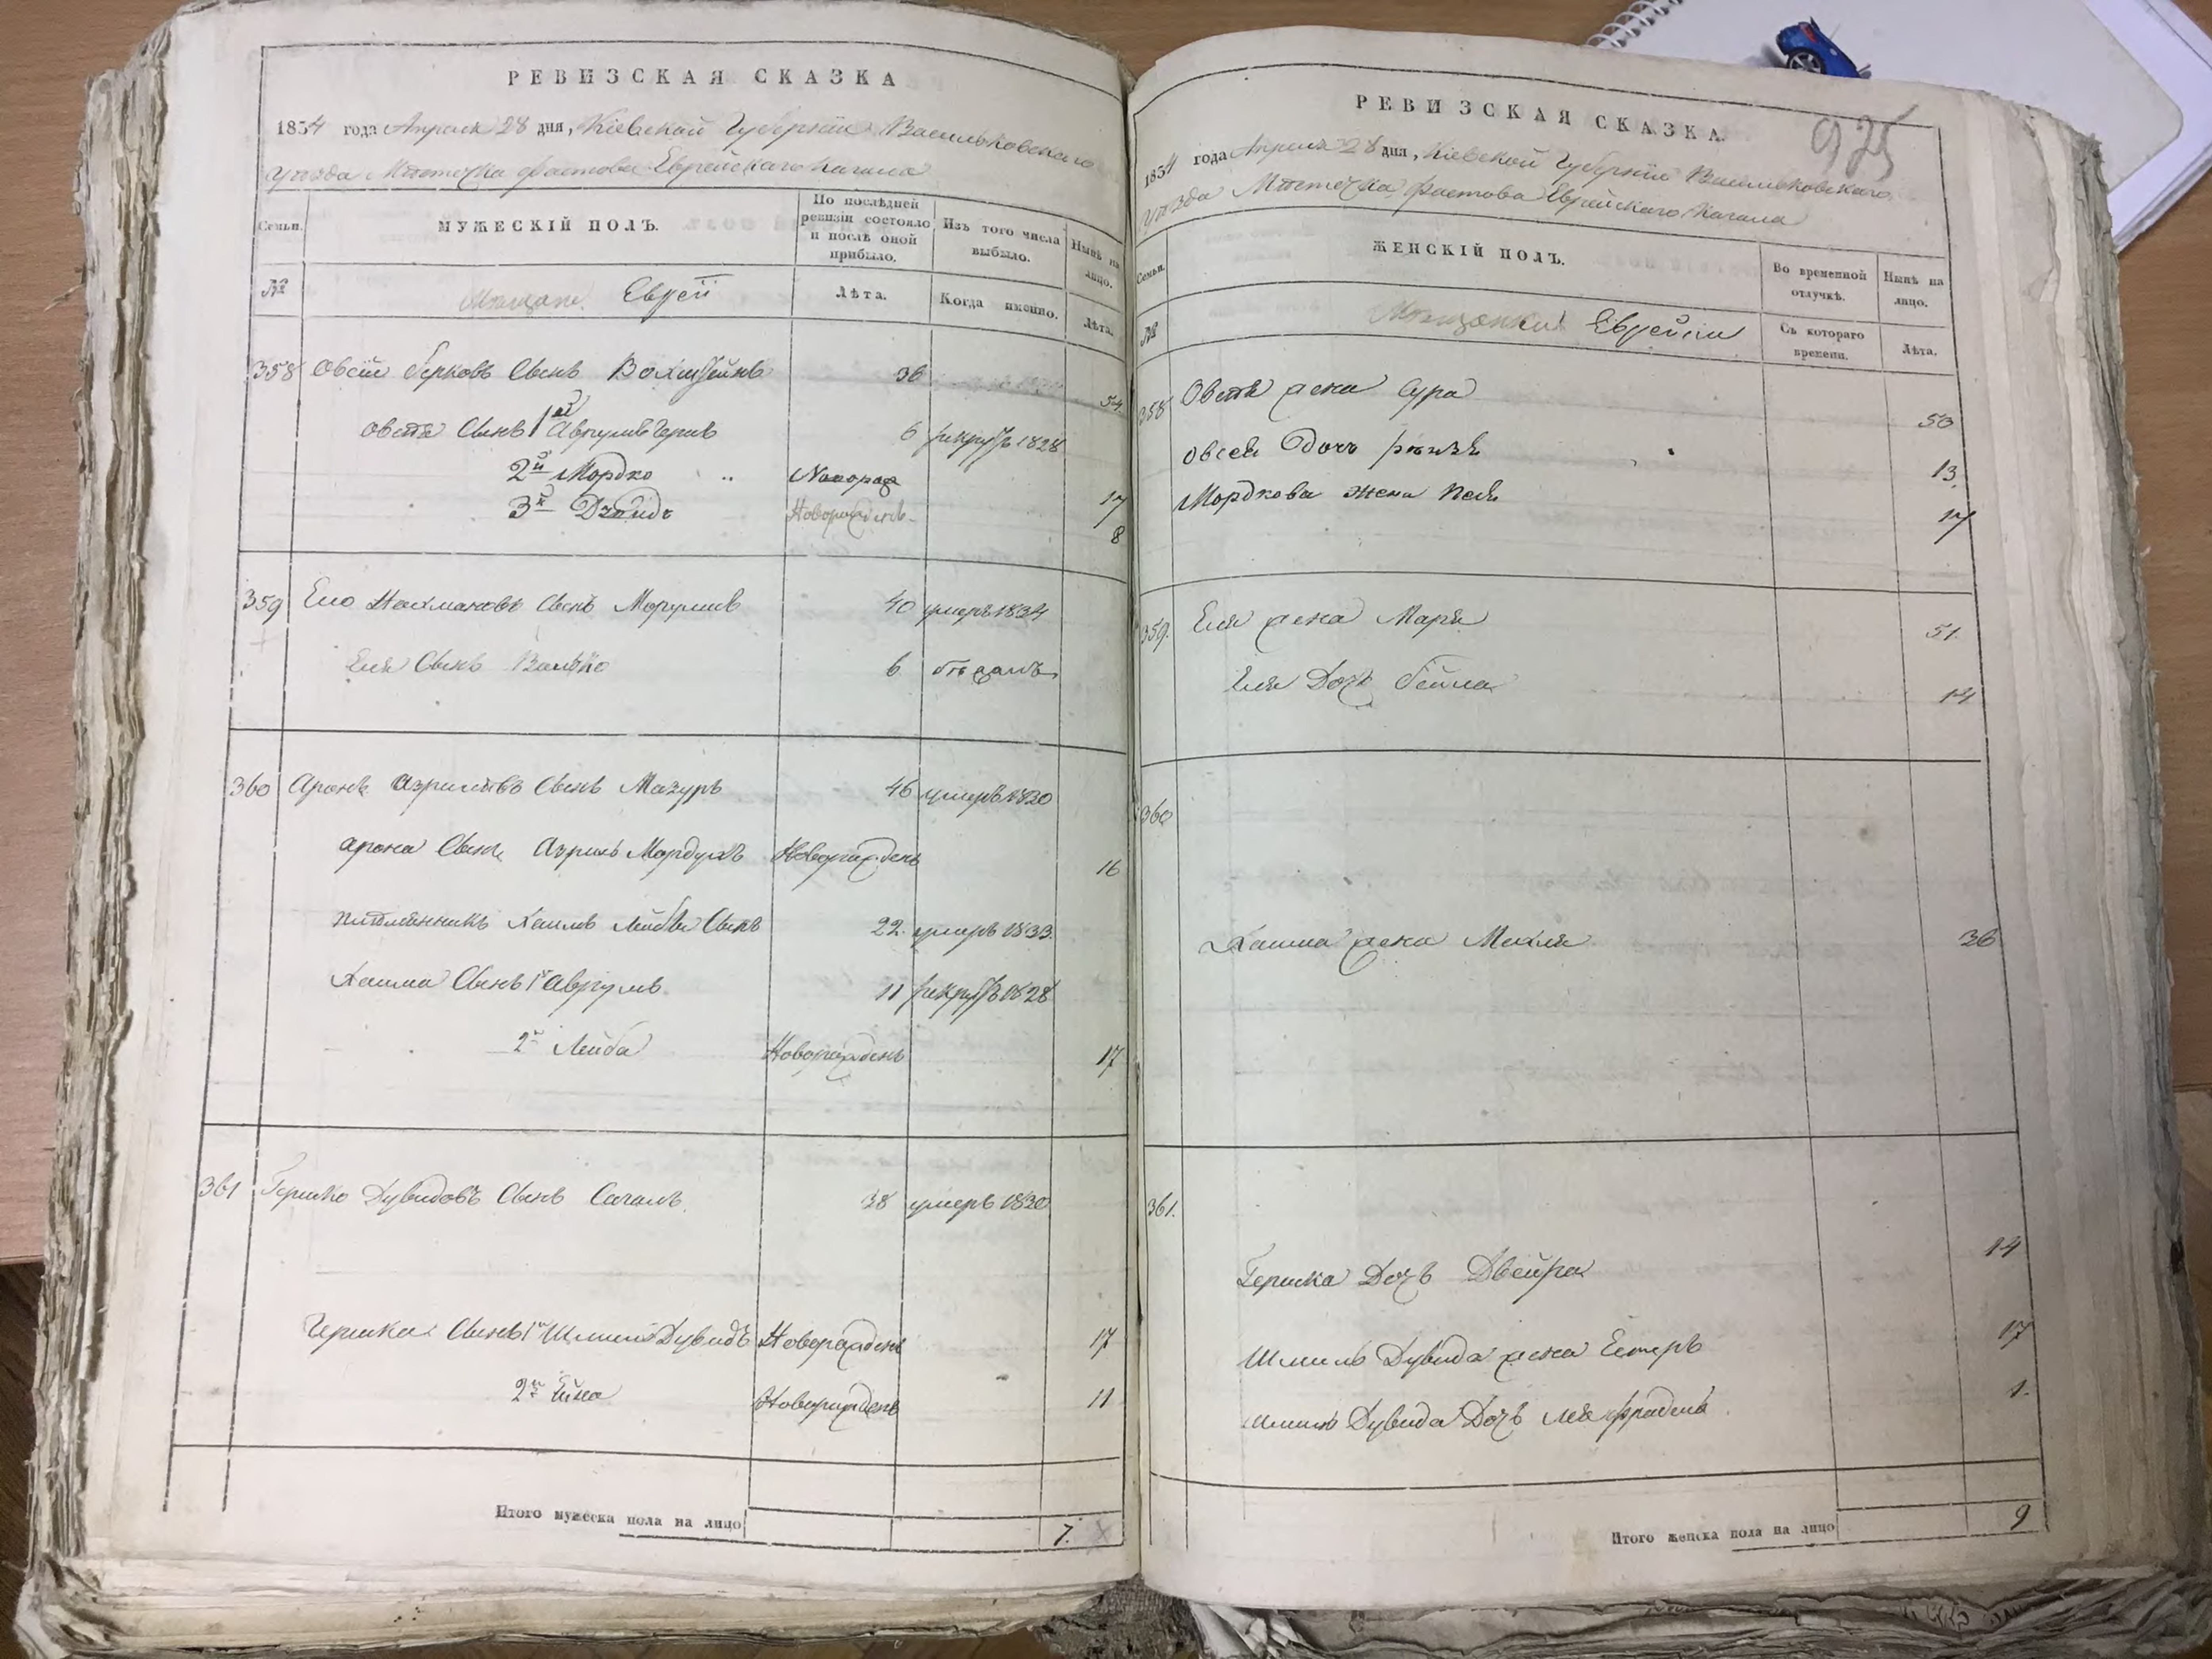 РЕВИЗСКАЯ СКАЗКА
1834 года Апреля 28 дня, Кіевской Губерніи Васильковскаго
уѣзда Мѣстечка Фастова Еврейскаго Кагала
Семьи.
МУЖЕСКІЙ ПОЛЪ.
По послѣдней ревизіи состояло и послѣ оной прибыло.
Изъ того числа выбыло.
Нынѣ на лицо.
№
Мѣщане Еврей
Лѣта.
Когда именно.
Лѣта.
358 Овсій Берковъ Сынъ 36 54
Овсѣя Сынъ 1й 6 рекрутъ 1828
2й Мордко 17
3й Новорожденъ 8
359 Ело Нахмановъ Сынъ 40 умеръ 1834
Еля Сынъ 6
360 Аронъ Азрилевъ Сынъ Мазуръ 46 умеръ 1830
Арона Сынъ Азриль Мордухъ Новорожденъ 16
племянникъ Хаимъ Лейбы Сынъ 22 умеръ 1833
Хаима Сынъ 1й Аврумъ 11 рекрутъ 1828
2й Лейба Новорожденъ 17
361 Гершко Дувидовъ Сынъ Сагалъ 38 умеръ 1830
Гершка Сынъ 1й Шмиль Дувидъ Новорожденъ 17
2й Новорожденъ 11
Итого мужеска пола на лицо 7.
РЕВИЗСКАЯ СКАЗКА.
925
1834 года Апреля 28 дня, Кіевской Губерніи Васильковскаго
уѣзда Мѣстечка Фастова Еврейскаго Кагала
Семьи.
ЖЕНСКІЙ ПОЛЪ.
Во временной отлучкѣ.
Нынѣ на лицо.
№
Мѣщанки Еврейки
Съ котораго времени.
Лѣта.
358 Овсѣя жена Сура 50
Овсея Дочь 13
Мордкова жена Песя 17
359. Еля жена Маря 51.
Еля Дочь Бейла 14
360
Хаима жена Махля 36
361.
Гершка Дочь Двейра 14
Шмиль Дувида жена Естеръ 17
Шмиль Дувида Дочь 1.
Итого женска пола на лицо 9